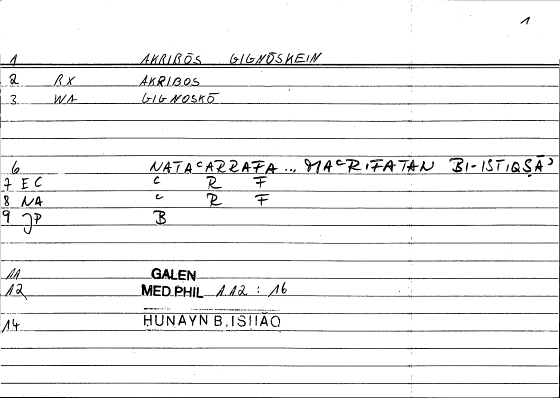 1
1 AKRIBŌS GIGNŌSKEIN
2 RX AKRIBOS
3 WA GIGNOSKŌ
6 NATAᶜARRAFA .., MAᶜRIFATAN BI-ISTIQṢĀʾ
7 EC ᶜ R F
8 NA ᶜ R F
9 JP B
11 GALEN
12 MED.PHIL 1.12 : 16
14 HUNAYN B.ISHAQ